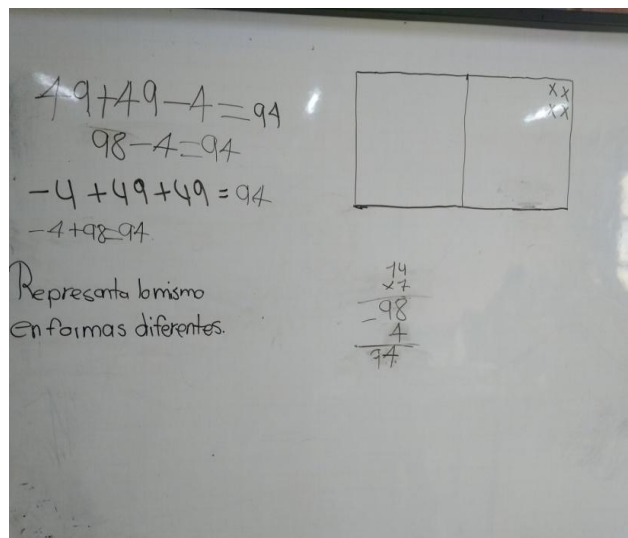 49+49-4=94
98-4=94
-4+49+49=94
-4+98=94
Representa lo mismo
en formas diferentes.
xx
xx
14
x7
98
-
4
94